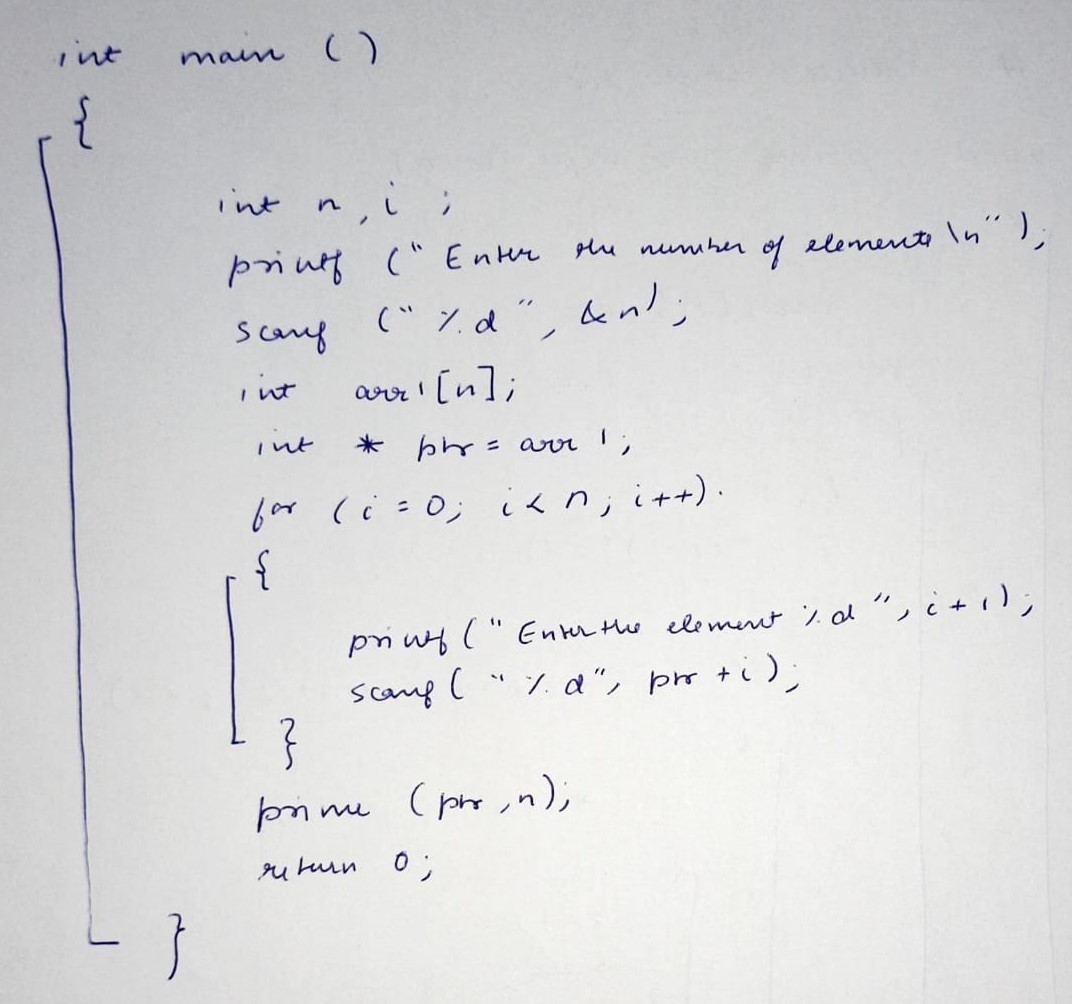 int main ()
{
int n, i ;
printf (" Enter the number of elements \n" );
scanf (" %d ", &n);
int arr1[n];
int * ptr = arr1;
for (i = 0; i < n; i++).
{
printf (" Enter the element %d ", i + 1);
scanf ( " %d", ptr + i );
}
prime (ptr, n);
return 0;
}